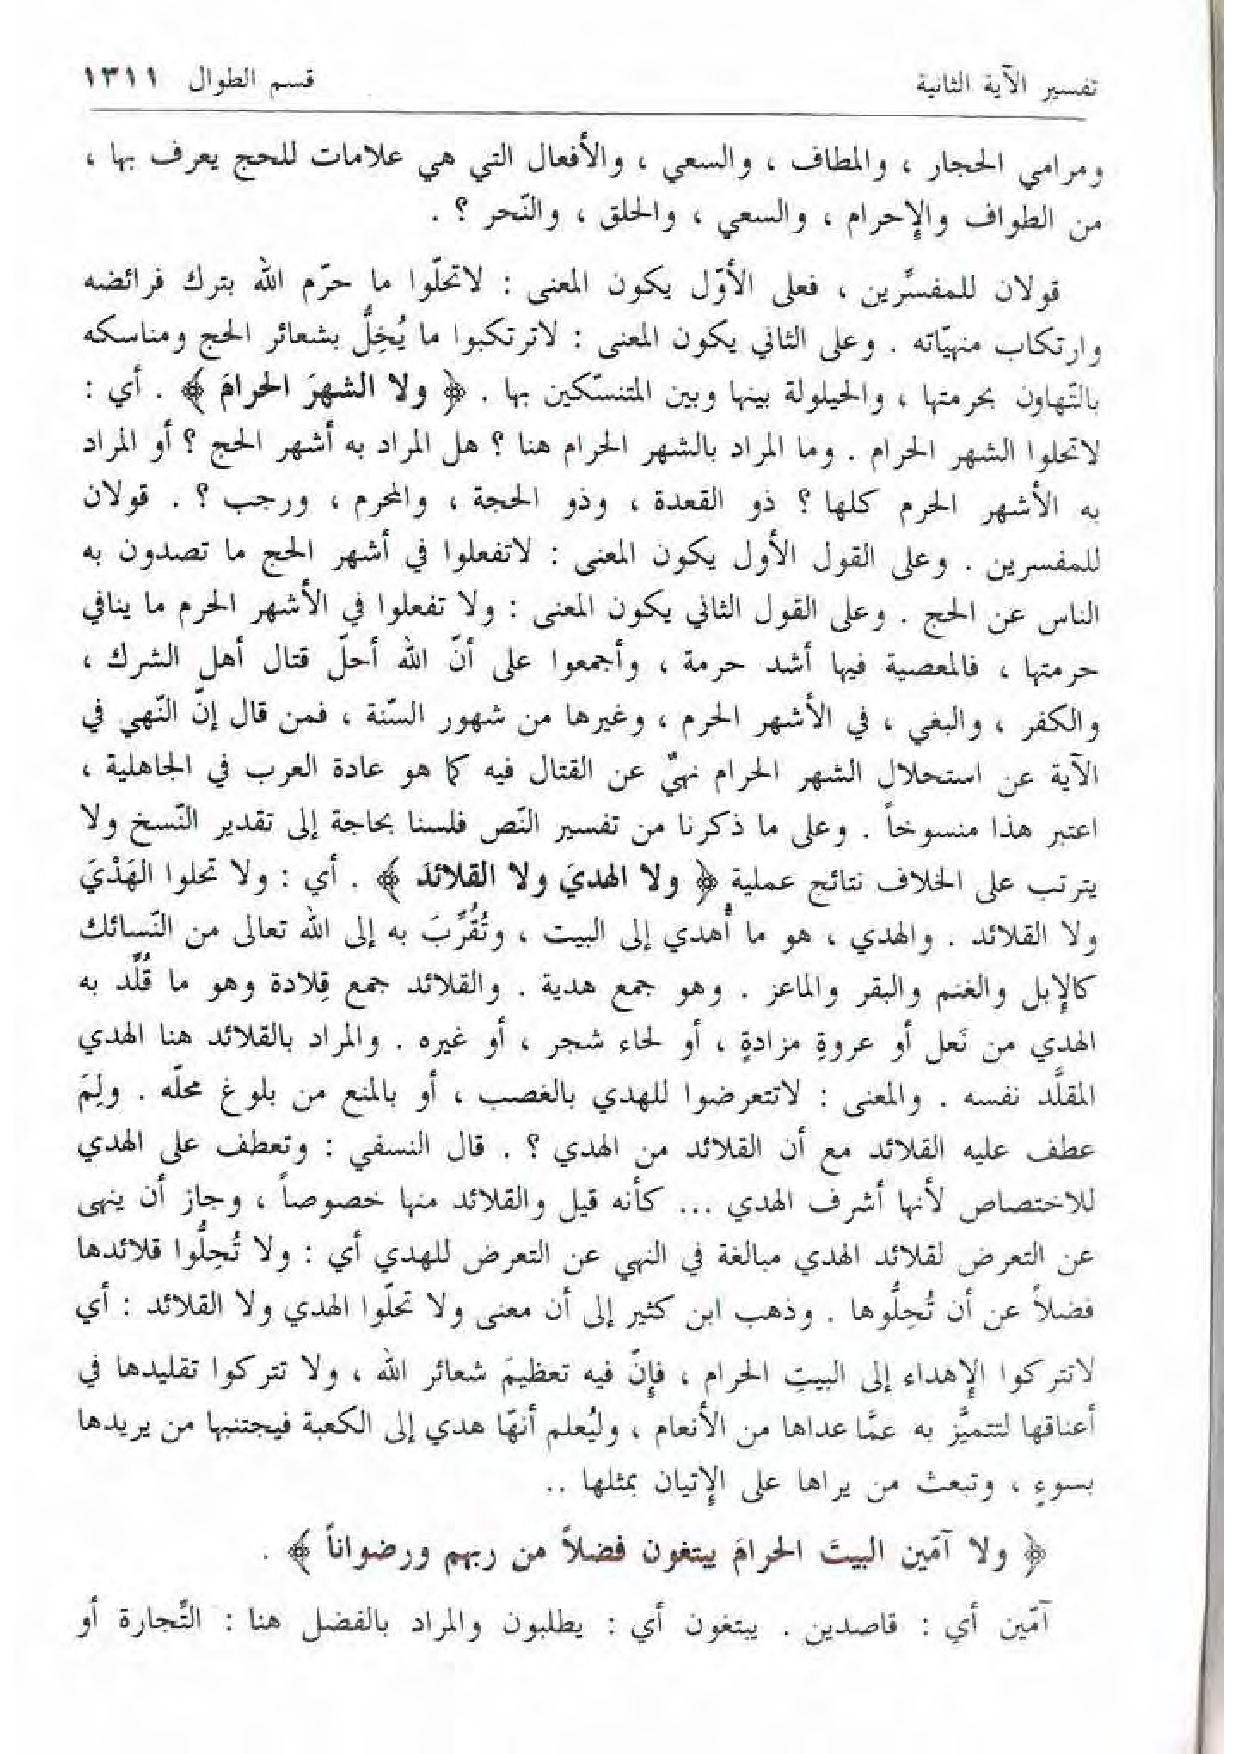 تفسير الآية الثانية
قسم الطوال ١٣١١
ومرامي الحجار ، والمطاف ، والسعي ، والأفعال التي هي علامات للحج يعرف بها ،
من الطواف والإحرام ، والسعي ، والحلق ، والنّحر ؟ .
قولان للمفسِّرين ، فعلى الأوّل يكون المعنى : لاتحلّوا ما حرّم الله بترك فرائضه
وارتكاب منهيّاته . وعلى الثاني يكون المعنى : لاترتكبوا ما يُخِلُّ بشعائر الحج ومناسكه
بالتّهاون بحرمتها ، والحيلولة بينها وبين المتنسّكين بها . ﴿ ولا الشهرَ الحرامَ ﴾ . أي :
لاتحلوا الشهر الحرام . وما المراد بالشهر الحرام هنا ؟ هل المراد به أشهر الحج ؟ أو المراد
به الأشهر الحرم كلها ؟ ذو القعدة ، وذو الحجة ، والمحرم ، ورجب ؟ . قولان
للمفسرين . وعلى القول الأول يكون المعنى : لاتفعلوا في أشهر الحج ما تصدون به
الناس عن الحج . وعلى القول الثاني يكون المعنى : ولا تفعلوا في الأشهر الحرم ما ينافي
حرمتها ، فالمعصية فيها أشد حرمة ، وأجمعوا على أنّ الله أحلّ قتال أهل الشرك ،
والكفر ، والبغي ، في الأشهر الحرم ، وغيرها من شهور السّنة ، فمن قال إنّ النّهي في
الآية عن استحلال الشهر الحرام نهيٌ عن القتال فيه كما هو عادة العرب في الجاهلية ،
اعتبر هذا منسوخاً . وعلى ما ذكرنا من تفسير النّص فلسنا بحاجة إلى تقدير النّسخ ولا
يترتب على الخلاف نتائج عملية ﴿ ولا الهديَ ولا القلائدَ ﴾ . أي : ولا تحلوا الهَدْيَ
ولا القلائد . والهدي ، هو ما أُهدي إلى البيت ، وتُقُرِّبَ به إلى الله تعالى من النّسائك
كالإبل والغنم والبقر والماعز . وهو جمع هدية . والقلائد جمع قِلادة وهو ما قُلِّد به
الهدي من نَعل أو عروةِ مزادةٍ ، أو لحاء شجر ، أو غيره . والمراد بالقلائد هنا الهدي
المقلَّد نفسه . والمعنى : لاتتعرضوا للهدي بالغصب ، أو بالمنع من بلوغ محلّه . ولِمَ
عطف عليه القلائد مع أن القلائد من الهدي ؟ . قال النسفي : وتعطف على الهدي
للاختصاص لأنها أشرف الهدي ... كأنه قيل والقلائد منها خصوصاً ، وجاز أن ينهى
عن التعرض لقلائد الهدي مبالغة في النهي عن التعرض للهدي أي : ولا تُحِلُّوا قلائدها
فضلاً عن أن تُحِلُّوها . وذهب ابن كثير إلى أن معنى ولا تحلّوا الهدي ولا القلائد : أي
لاتتركوا الإهداء إلى البيتِ الحرام ، فإنّ فيه تعظيمَ شعائر الله ، ولا تتركوا تقليدها في
أعناقها لتتميَّز به عمَّا عداها من الأنعام ، وليُعلم أنهّا هدي إلى الكعبة فيجتنبها من يريدها
بسوءٍ ، وتبعث من يراها على الإتيان بمثلها ..
﴿ ولا آمّين البيتَ الحرامَ يبتغون فضلاً من ربهم ورضواناً ﴾ .
آمّين أي : قاصدين . يبتغون أي : يطلبون والمراد بالفضل هنا : التّجارة أو